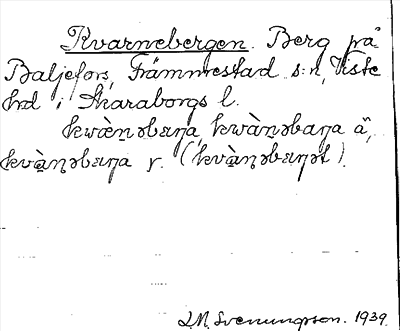 Kvarnebergen. Berg på
Baljefors, Främmestad s:n, Viste
hd i Skaraborgs l.
kwæ̀n̥əbæŋa, kwàn̥əbaŋa ä,
kvàn̥əbæŋa y. (kvàn̥əbæŋət).
J.M. Svenungsson. 1939.